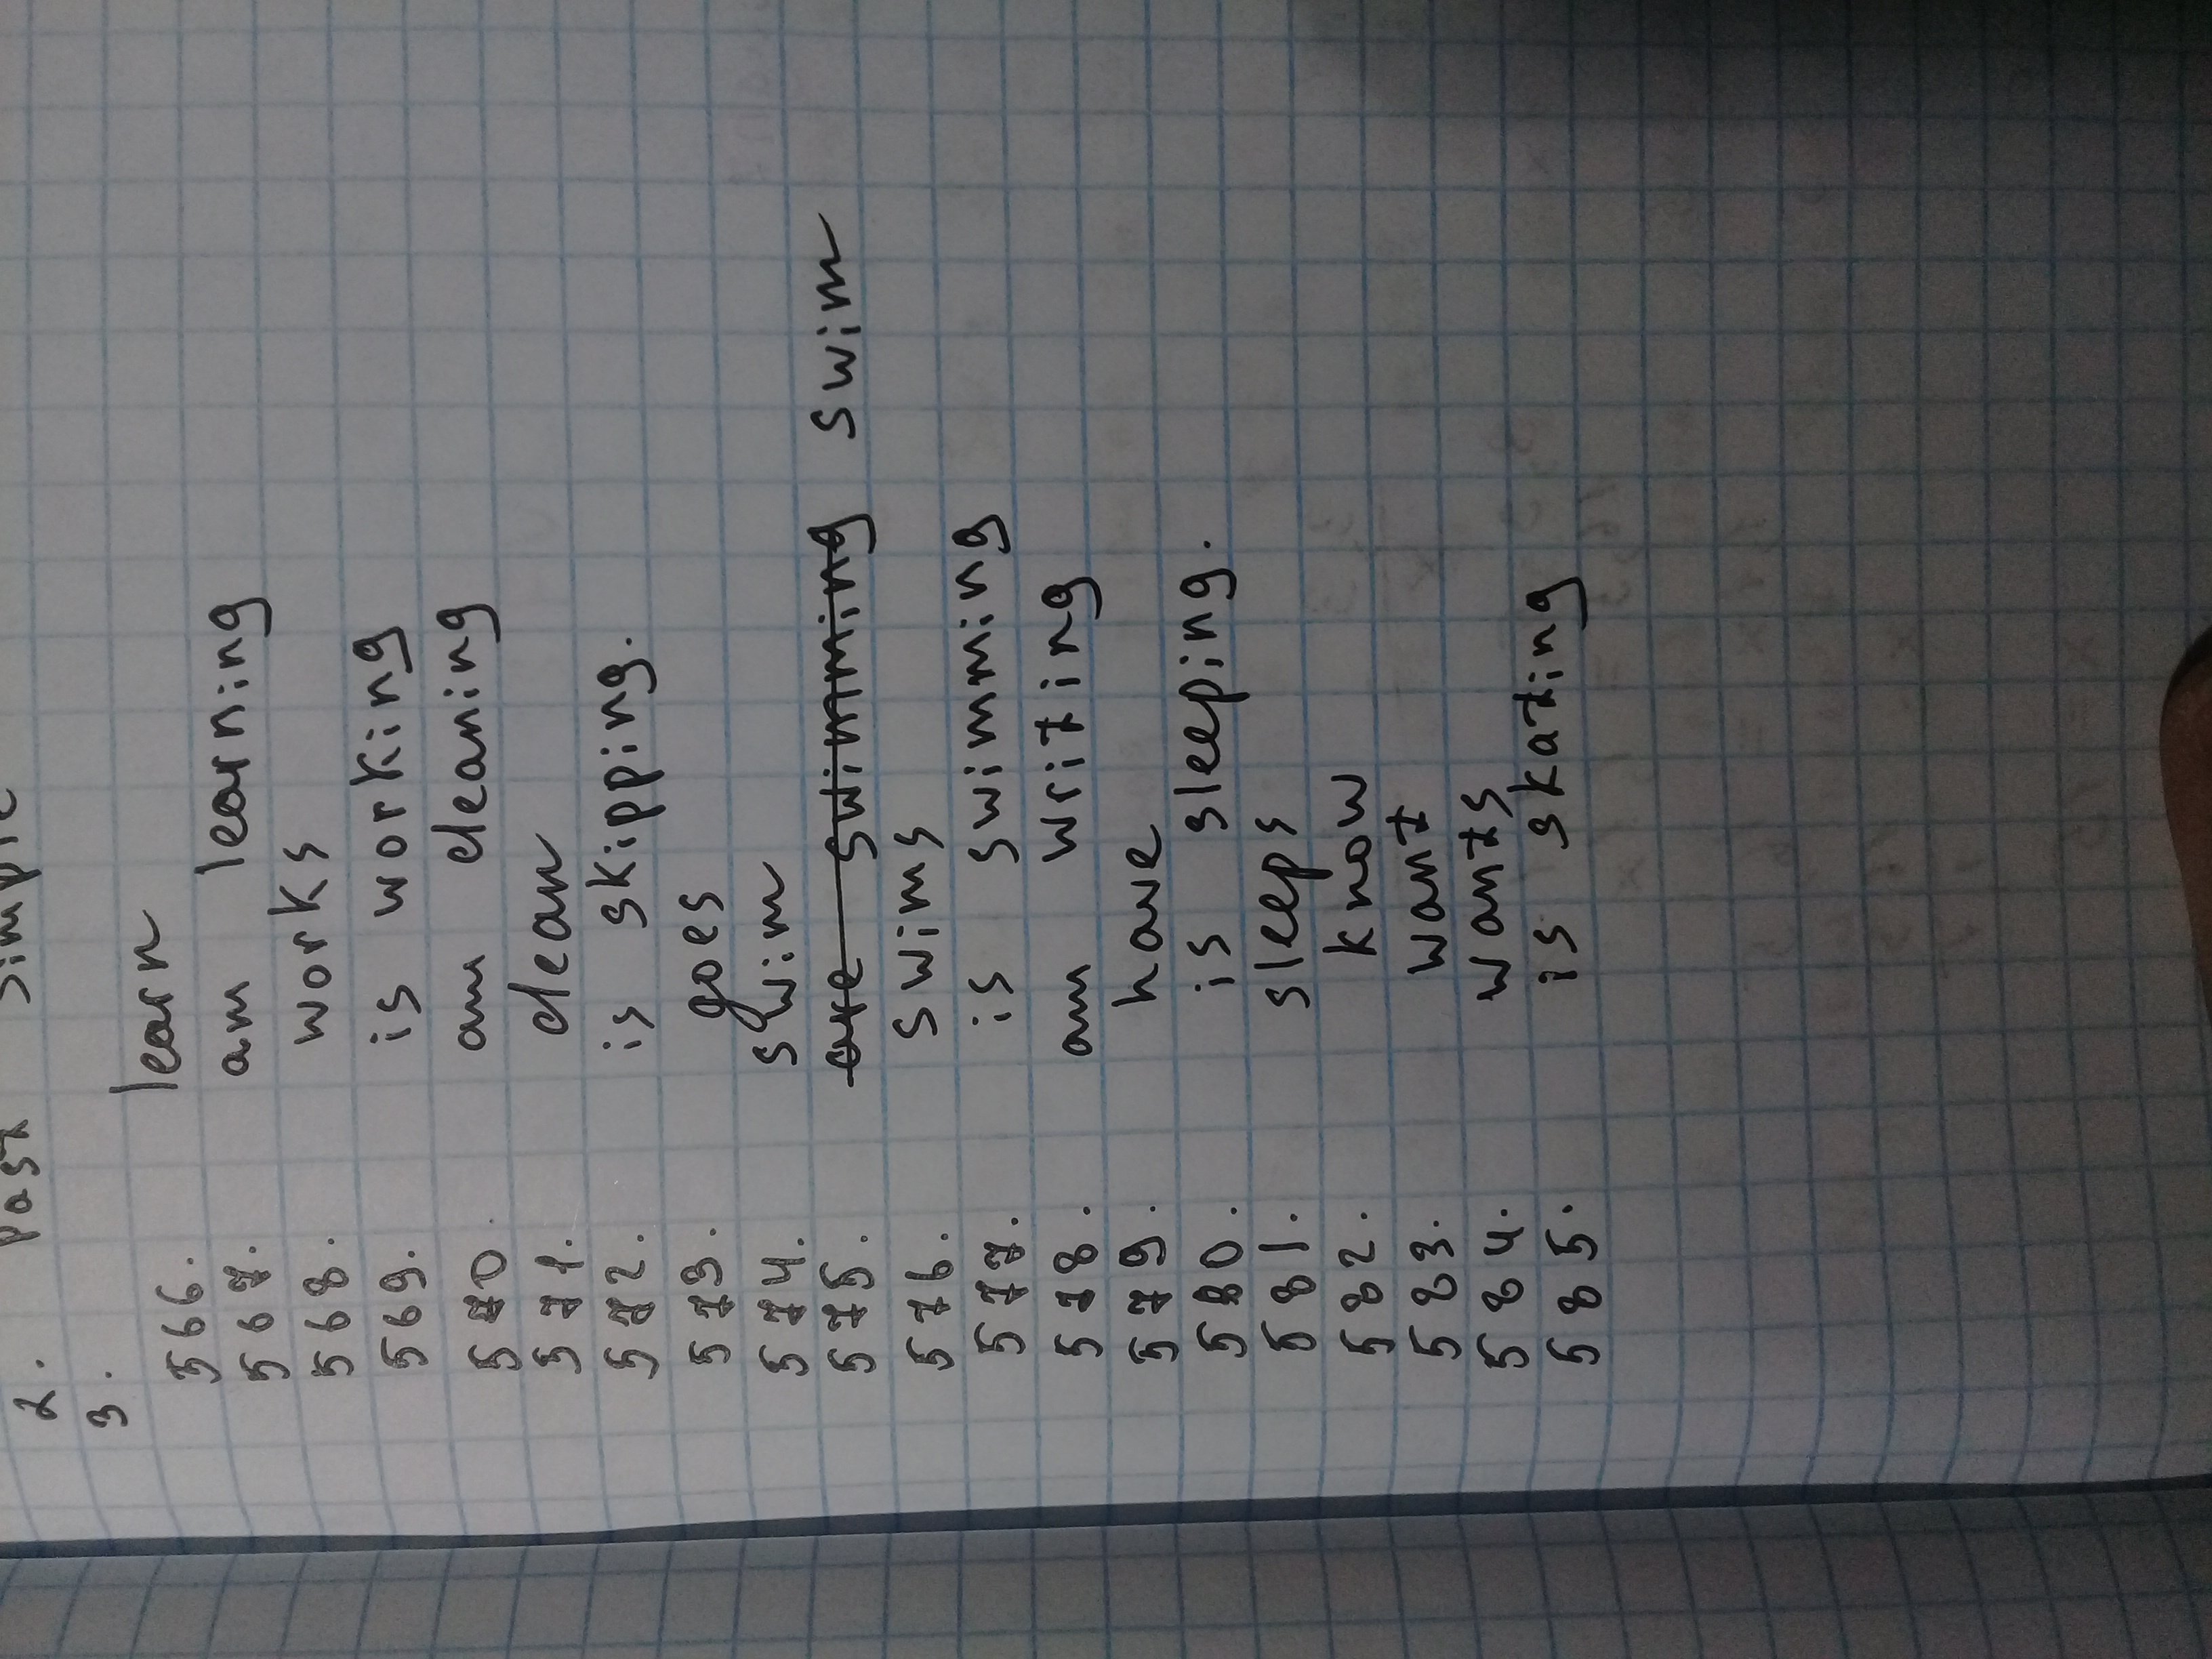 2. past simple
3.
566. learn
567. am learning
568. works
569. is working
570 am cleaning
571. clean
572. is skipping.
573. goes
574. swim
575. are swimming swim
576. swims
577. is swimming
578. am writing
579. have
580. is sleeping.
581. sleeps
582. know
583. want
584. wants
585. is skating